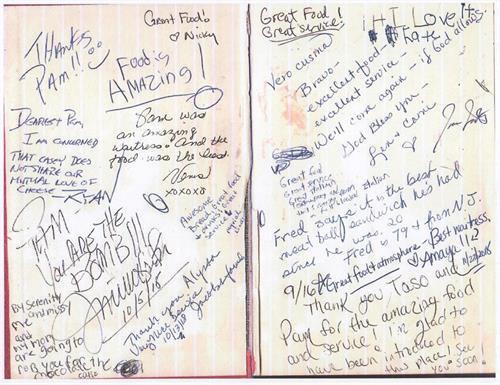 THANKS
PAM!!
Great Food!
♡ Nicky
Food is
AMAZING!
DEAREST PAM,
I AM CONCERNED
THAT CASEY DOES
NOT SHARE OUR
MUTUAL LOVE OF
CHEESE. RYAN
Pam was
an amazing
waitress. And the
food was the best.
xoxoxo
PAM
YOU ARE THE
BOMB!!!
10/5/18
Awesome
Bread, great food
service
Thank you Alyssa
10/13/18
By Serenity
and missy
me
and
my mom
are going to
rob you for the
chocolate cake
Great Food!
Great Service!
I Love it
Vero cusma
Bravo -
excellent food -
excellent service -
We'll come again - if God allows.
God Bless you -
Great food
Great service
Fred says it is the best
meat ball sandwich he's had
since he was 20
Fred is 79 & from N.J.
9/16 Great Food + atmosphere. Best waitress.
♡ Amaya
Thank you Taso and
Pam for the amazing food
and service! I'm glad to
have been introduced to
this place! See
you soon!